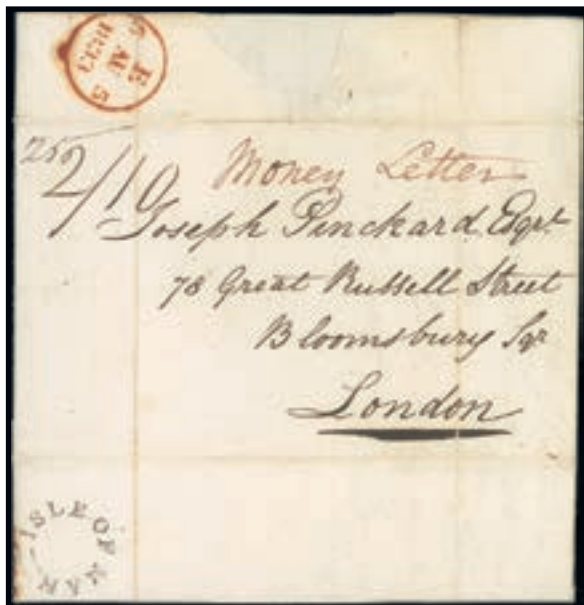 E
AU 5
1833
2/10
Money Letter
Joseph Pinckard Esqre
78 Great Russell Street
Bloomsbury Sqr
London
ISLE OF MAN